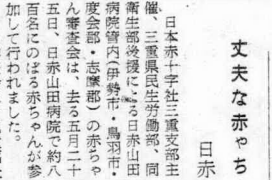 丈夫な赤ちち
日赤
日本赤十字社三重支部主
催、三重県民生労働部、同
衛生部後援による日赤山田
病院管内（伊勢市・鳥羽市・
度会郡・志摩郡）の赤ちゃ
ん審査会は、去る五月二十
五日、日赤山田病院で約八
百名にのぼる赤ちゃんが参
加して行われました。